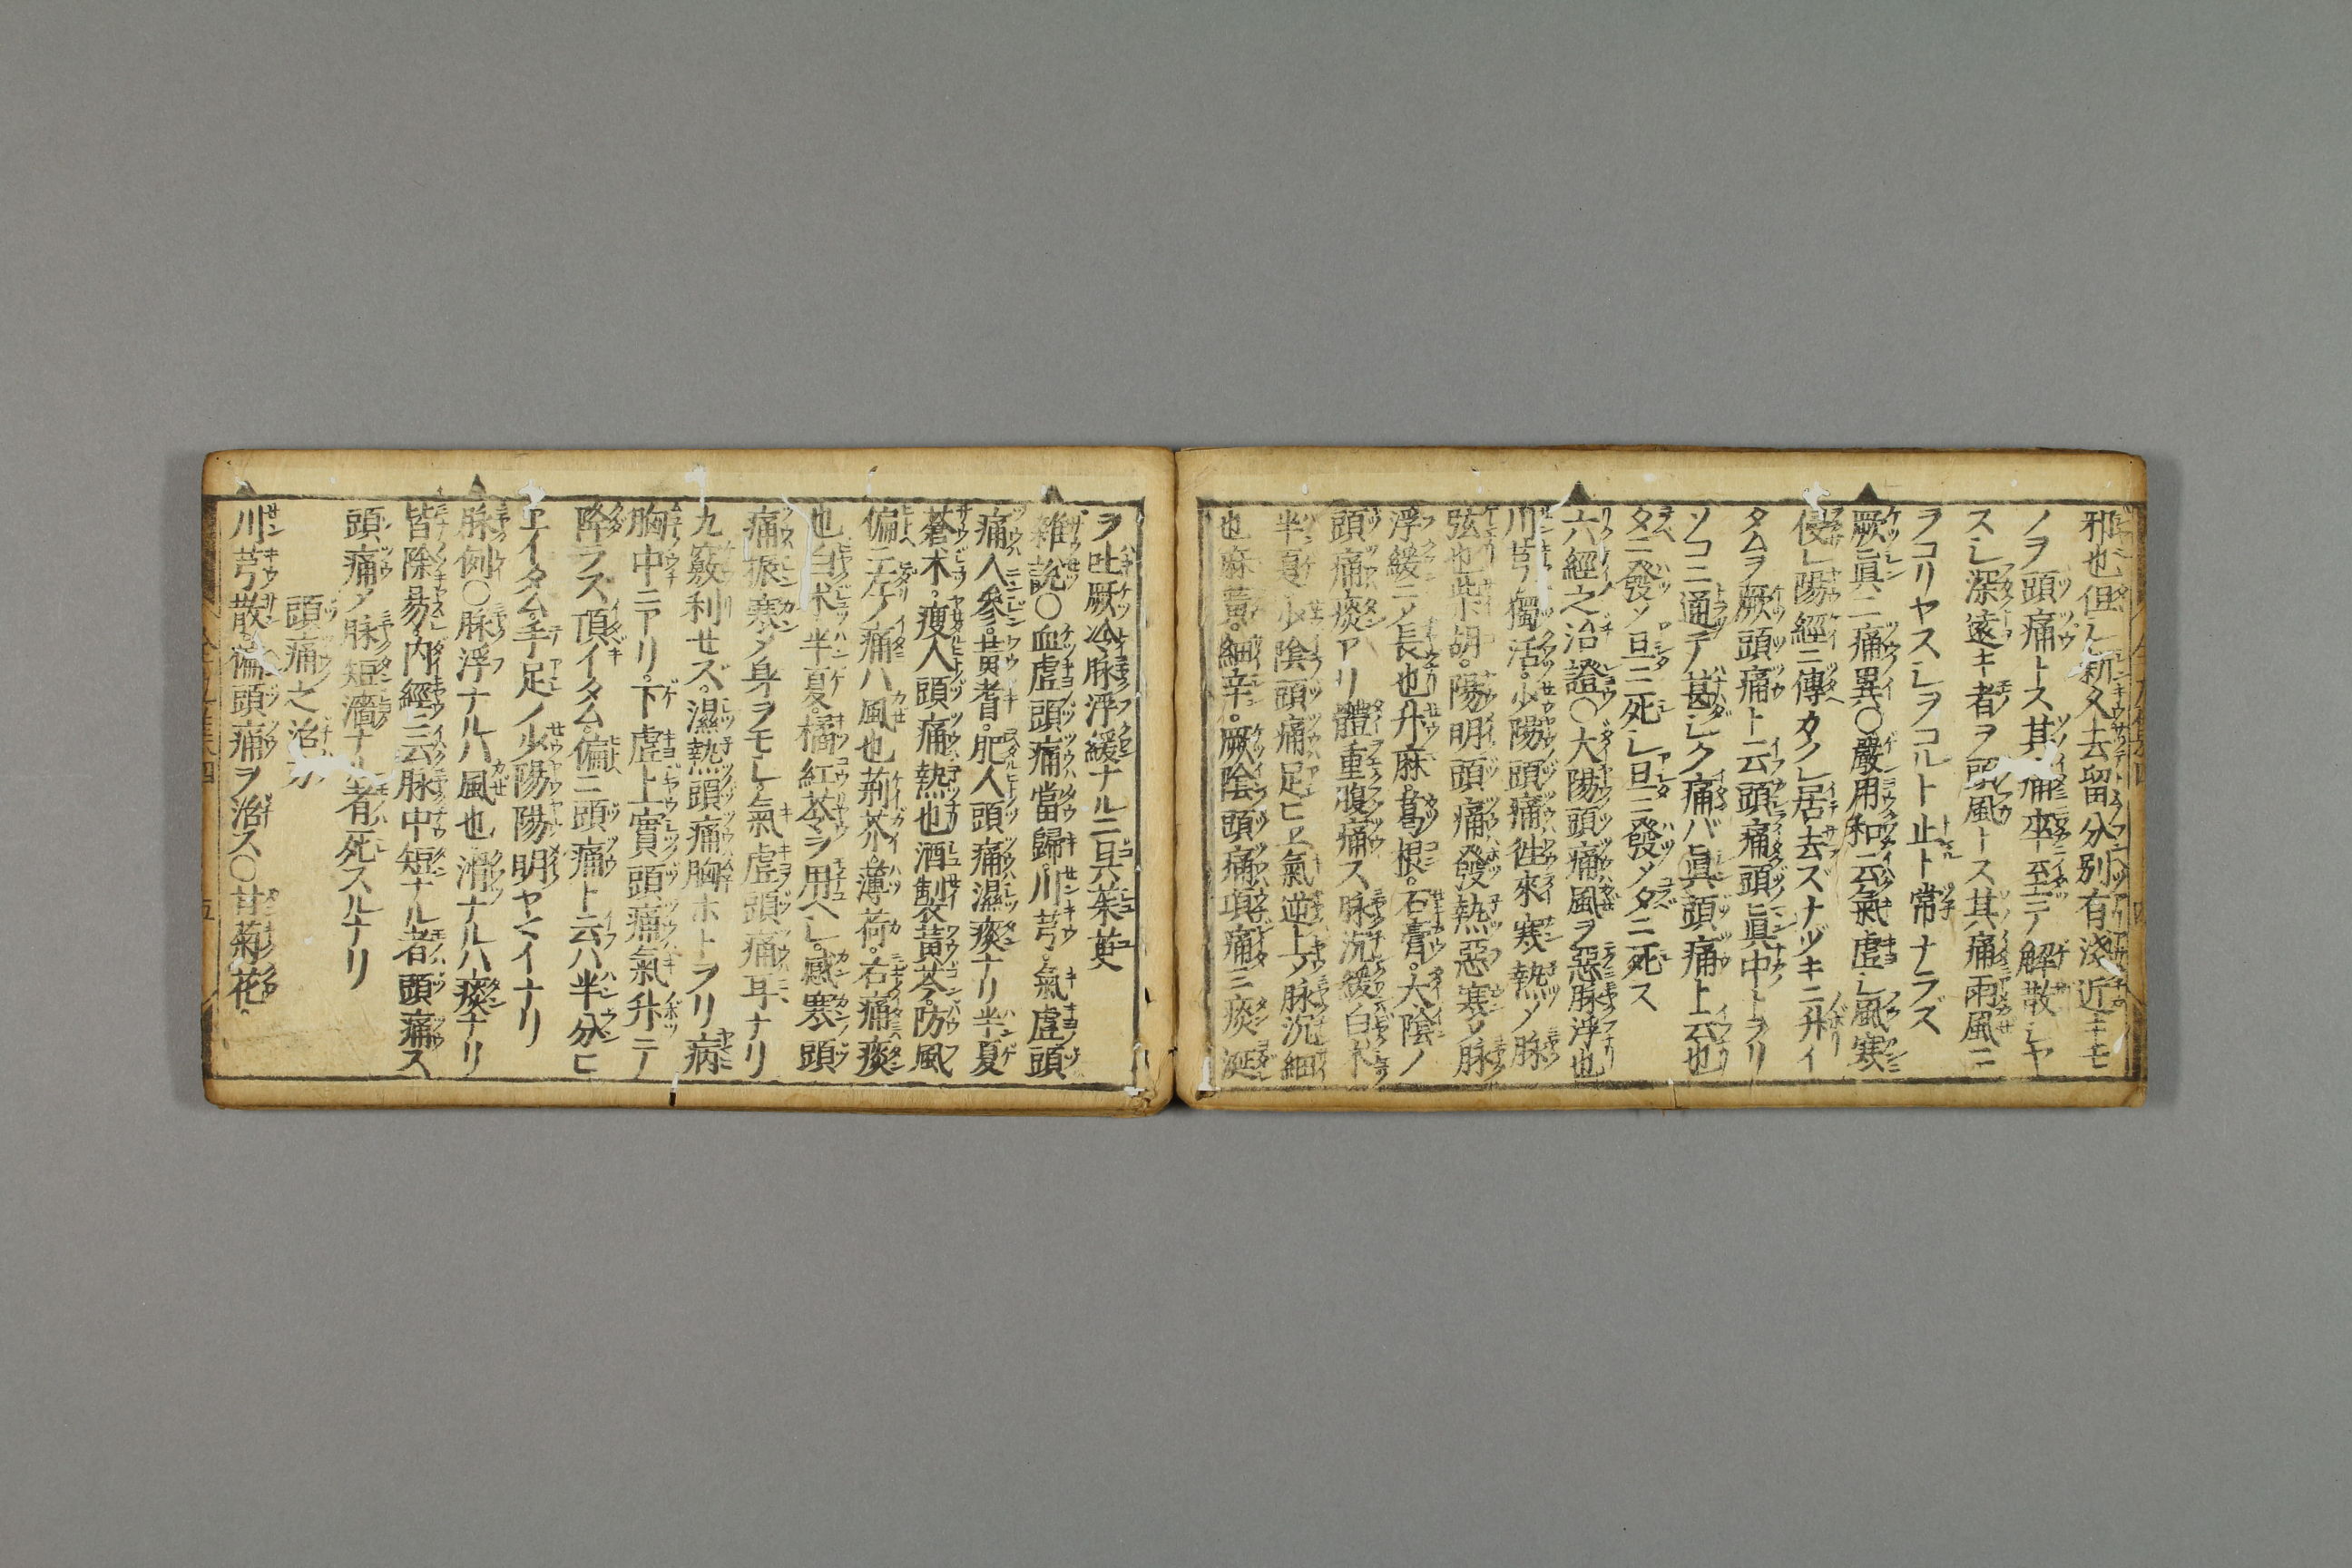 邪也但シ新久去留分別有淺近ナモ
ノヲ頭痛トス其痛卒至テ解散シヤ
スシ深遠キ者ヲ頭風トス其痛雨風ニ
ヲコリヤスシヲコルト止ト常ナラズ
厥眞二痛異〇嚴用和云氣虚シ風寒
侵シ陽經ニ傳カクシ居去ズナヅキニ升イ
タムヲ厥頭痛ト云頭痛頭眞中トヲリ
ソコニ通テ甚シク痛バ眞頭痛上云也
タニ發ノ旦ニ死シ旦ニ發メタニ死ス
六經之治證〇大陽頭痛風ヲ惡脉浮也
川芎獨活。少陽頭痛徃來寒熱メ脉
弦也柴胡。陽明頭痛發熱惡寒メ脉
浮緩ニメ長也升麻。葛根。石膏。大陰ノ
頭痛痰アリ體重腹痛ス脉沉緩白朮
半夏少陰頭痛足ヒヱ氣逆上メ脉沉細
也麻黄。細辛。厥陰頭痛項痛ミ痰涎
ヲ吐厥冷脉浮緩ナルニ呉茱萸
雜説〇血虚頭痛當歸。川芎。氣虚頭
痛人參。黄耆。肥人頭痛濕痰ナリ半夏
蒼朮。瘦人頭痛熱也酒製黄芩。防風
偏ニ左ノ痛ハ風也荊芥。薄荷。右痛痰
也白朮半夏。橘紅苓ヲ用ヘシ。感寒頭
痛振寒メ身ヲモシ。氣虚頭痛耳ナリ
九竅利セズ。濕熱頭痛胸ホトヲリ病
胸中ニアリ。下虚上實頭痛氣升テ
降ラス頂イタム。偏ニ頭痛ト云ハ半分ヒ
ヱイタム。手足ノ少陽陽明ヤマイナリ
脉例〇脉浮ナルハ風也滑ナルハ痰ナリ
皆除易。内經云脉中短ナル者頭痛ス
頭痛メ脉短濇ナル者死スルナリ
頭痛之治方
川芎散。偏頭痛ヲ治ス〇甘菊花。